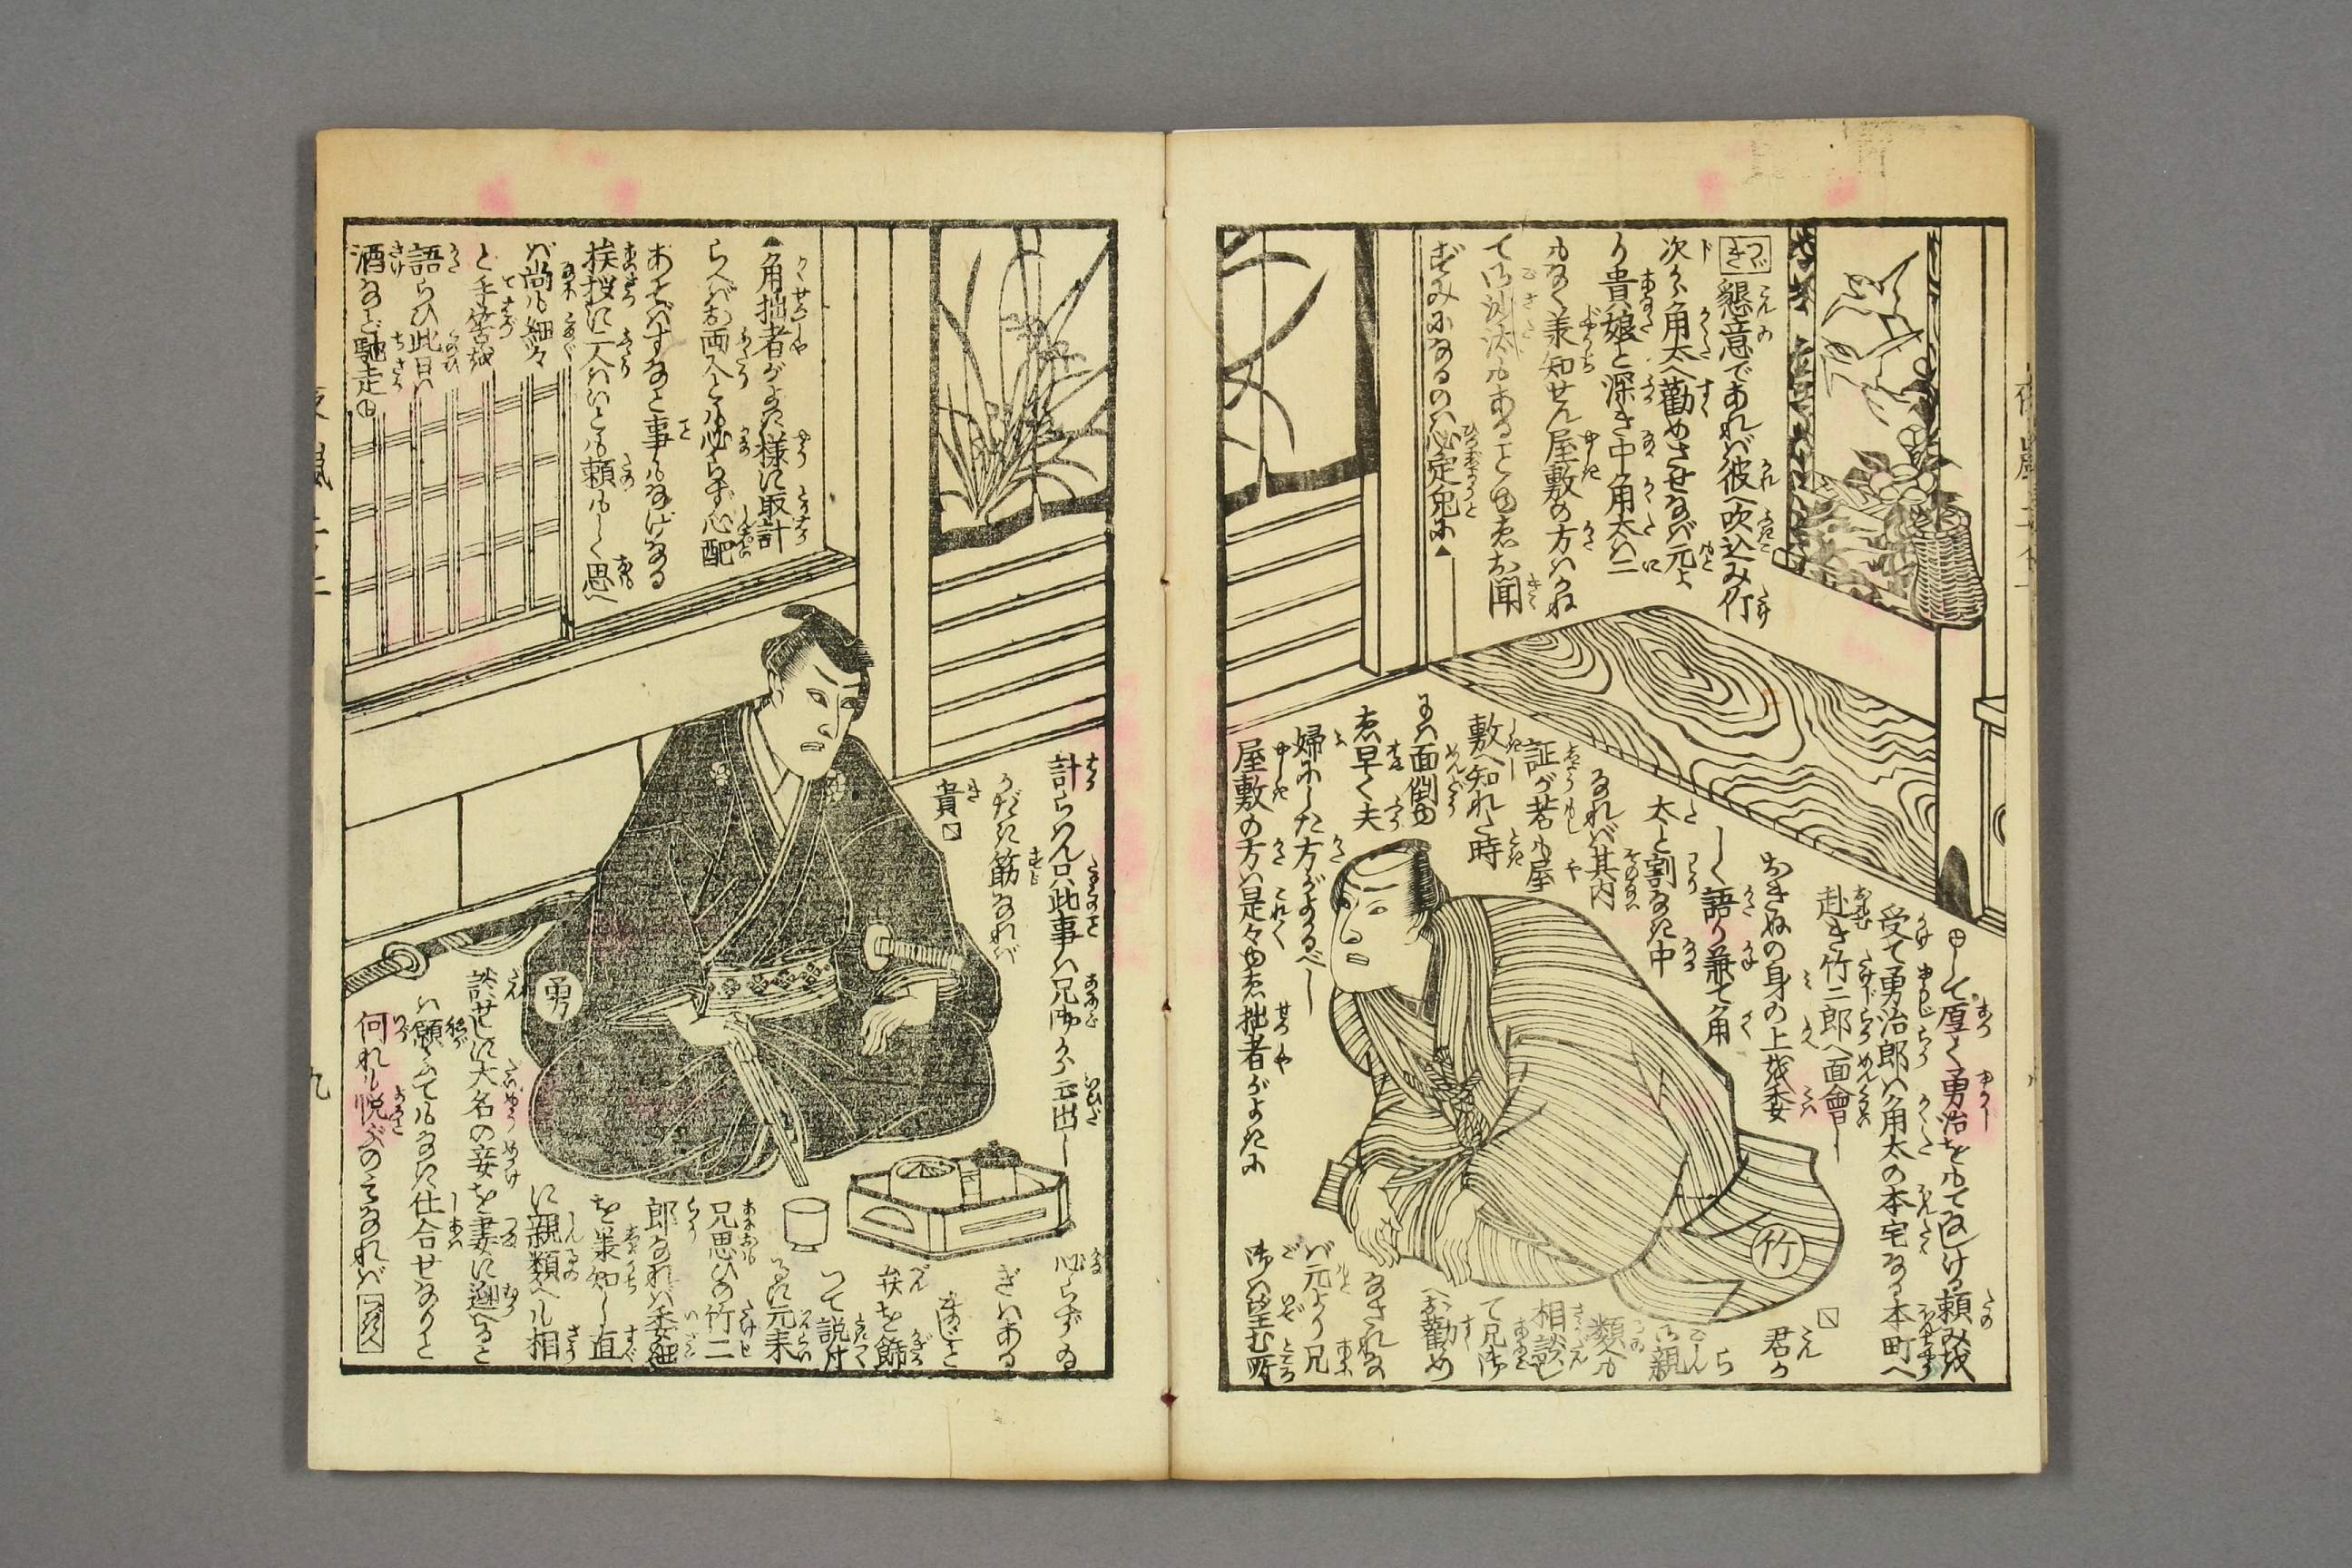 つゞき
懇意であれバ彼へ吹込み竹
次から角太へ勧めさせなバ元よ
り貴娘と深き中角太ハ二
もなく承知せん屋敷の方ハかね
て御沙汰もあることゆゑお聞
ずみになるのハ必定兎に▲
▲角拙者がよき様に取計
らへバお両人とも必らず心配
あそバすなと事もなげなる
挨拶に二人ハいとも頼もしく思へ
バ尚も細々
と手筈を
語らひ此日ハ
酒など馳走㊉
㊉して厚く勇治をもてなしける頼みを
受て勇治郎ハ角太の本宅なる本町へ
赴き竹二郎へ面會し
おきぬの身の上を委
しく語り兼て角
太と割なき中
なれバ其内
証が若も屋
敷へ知れた時
にハ面倒ゆ
ゑ早く夫
婦にした方がよかるべし
屋敷の方ハ是々ゆゑ拙者がよきに
計らハん只此事ハ兄御から云出し
かだき筋なれバ
貴◪
◪君か
ら
御親
類へも
相談し
て兄御
へお勧め
なされな
バ元より兄
御ハ望む所
必らずゐ
ぎハある
まじと
弁を飾
つて説付
るに元来
兄思ひの竹二
郎なれバ委細
を承知し直
に親類へも相
談せしに大名の妾を妻に迎へると
ハ願ふてもなき仕合せなりと
何れも悦ぶのみなれバ
つぎへ
勇
竹
九